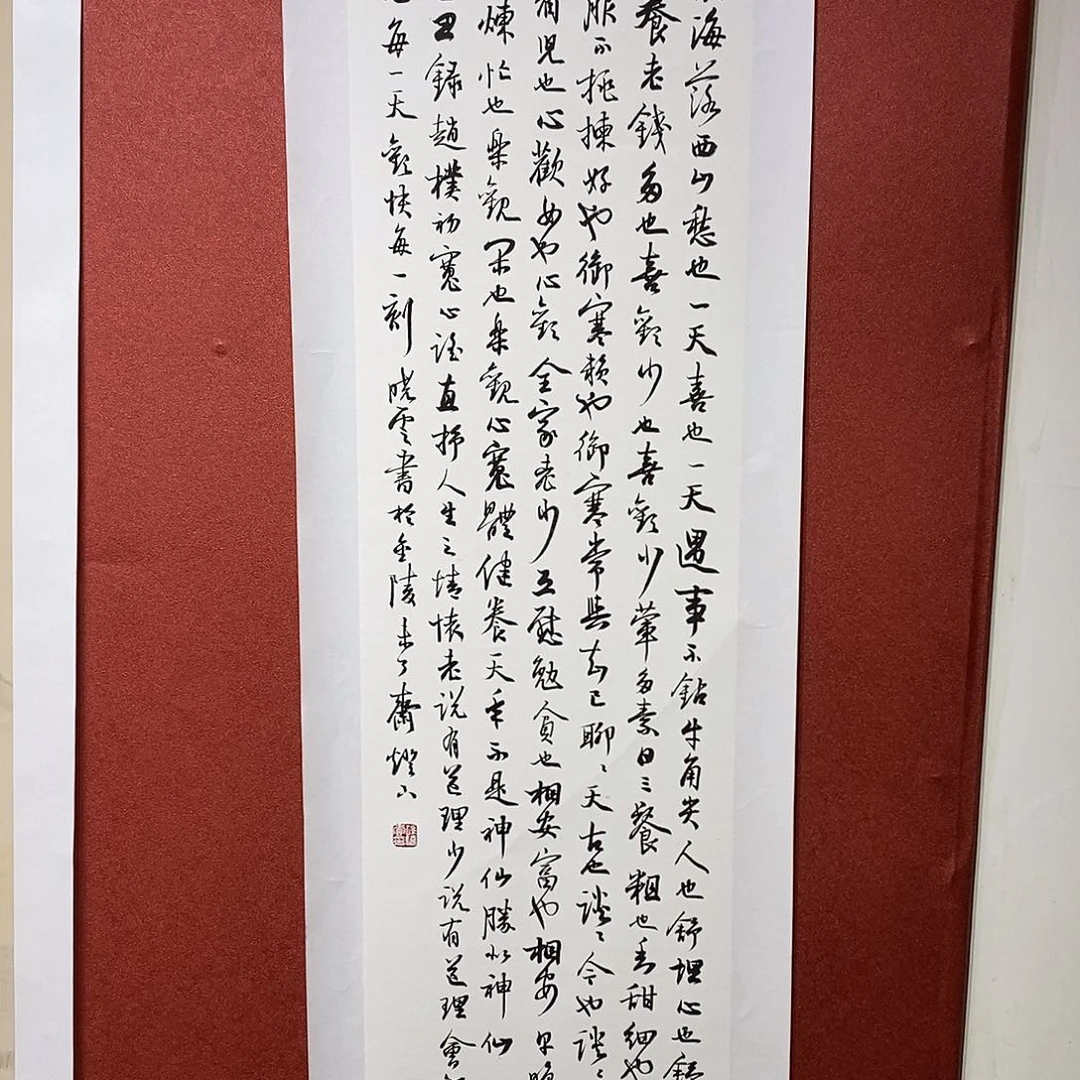 海落西山愁也一天喜也一天遇事不鉆牛角尖人也舒坦心也舒
養老錢多也喜歡少也喜歡少葷多素日三餐粗也香甜細也
服不挑揀好也御寒賴也御寒常與知己聊〻天古也談〻今也談〻
兒也心歡女也心歡全家老少互慰勉貧也相安富也相安早晚
煉忙也樂觀閑也樂觀心寬體健養天年不是神仙勝似神仙
丑錄趙樸初寬心謠直抒人生之情懷老說有道理少說有道理會
每一天歡快每一刻 曉雲書於金陵未了齋燈下